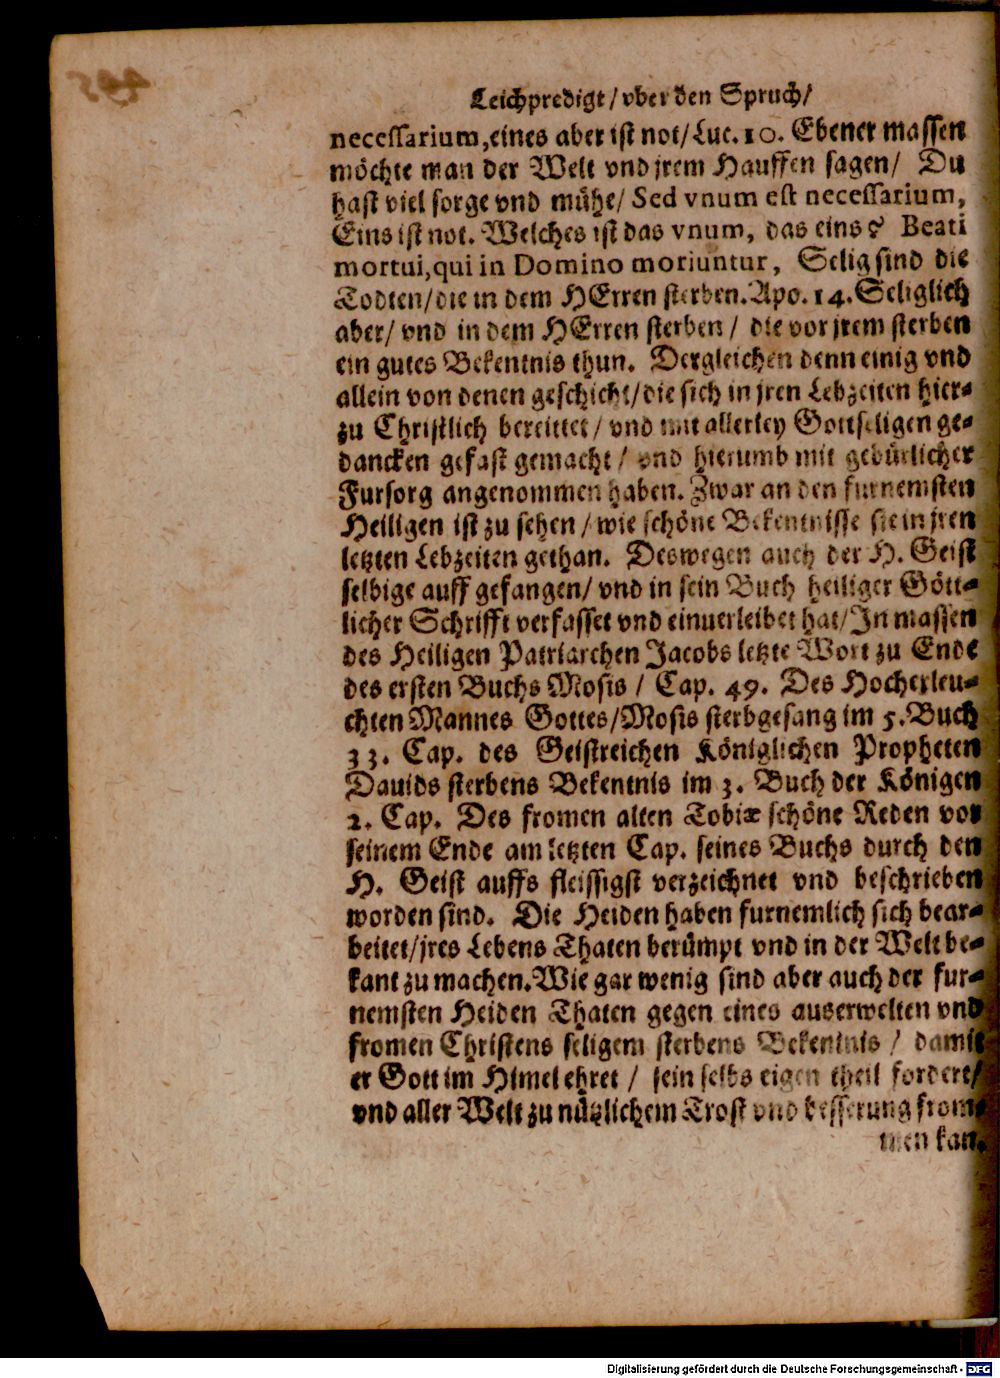 Leichpredigt/ vber den Spruch/
necessarium, eines aber ist not/ Luc. 10. Ebener massen
möchte man der Welt vnd jrem Hauffen sagen/ Du
hast viel sorge vnd mühe/ Sed vnum est necessarium,
Eins ist not. Welches ist das vnum, das eins? Beati
mortui, qui in Domino moriuntur, Selig sind die
Todten/ die in dem HErren sterben. Apo. 14. Seliglich
aber/ vnd in dem HErren sterben/ die vor jrem sterben
ein gutes Bekentnis thun. Dergleichen denn einig vnd
allein von denen geschicht/ die sich in jren Lebzeiten hier-
zu Christlich bereittet/ vnd mit allerley Gottseligen ge-
dancken gefast gemacht/ vnd hierumb mit gebürlicher
Fursorg angenommen haben. Zwar an den furnemsten
Heiligen ist zu sehen/ wie schöne Bekentnisse sie in jren
letzten Lebzeiten gethan. Deswegen auch der H. Geist
selbige auff gefangen/ vnd in sein Buch heiliger Gött-
licher Schrifft verfasset vnd einuerleibet hat/ In massen
des Heiligen Patriarchen Jacobs letzte Wort zu Ende
des ersten Buchs Mosis/ Cap. 49. Des Hocherleu-
chten Mannes Gottes/ Mosis sterbgesang im 5. Buch
33. Cap. des Geistreichen Königlichen Propheten
Dauids sterbens Bekentnis im 3. Buch der Königen
2. Cap. Des fromen alten Tobiæ schöne Reden vor
seinem Ende am letzten Cap. seines Buchs durch den
H. Geist auffs fleissigst verzeichnet vnd beschrieben
worden sind. Die Heiden haben furnemlich sich bear-
beitet/ jres Lebens Thaten berümpt vnd in der Welt be-
kant zu machen. Wie gar wenig sind aber auch der fur-
nemsten Heiden Thaten gegen eines auserwelten vnd
fromen Christens seligem sterbens Bekentnis/ damit
er Gott im Himel ehret/ sein selbs eigen theil fordert/
vnd aller Welt zu nützlichem Trost vnd besserung from-
men kan.
Digitalisierung gefördert durch die Deutsche Forschungsgemeinschaft - DFG